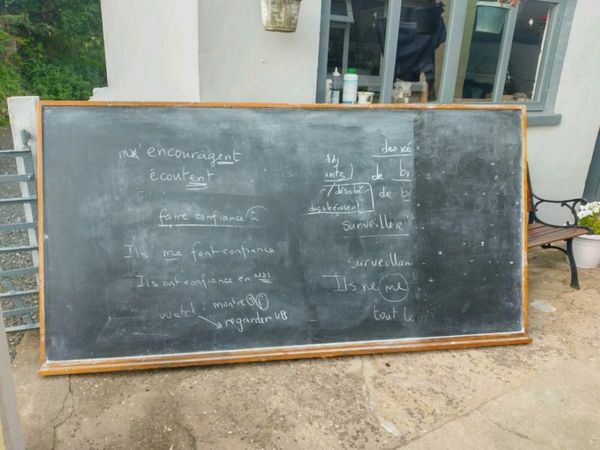 m' encouragent
écoutent
faire confiance à
Ils me font confiance
Ils ont confiance en MOI
watch : montre
regarder VB
Adj
ints)
désobéir
desobéissent
de
de
surveiller
surveillan
Ils ne me
tout le